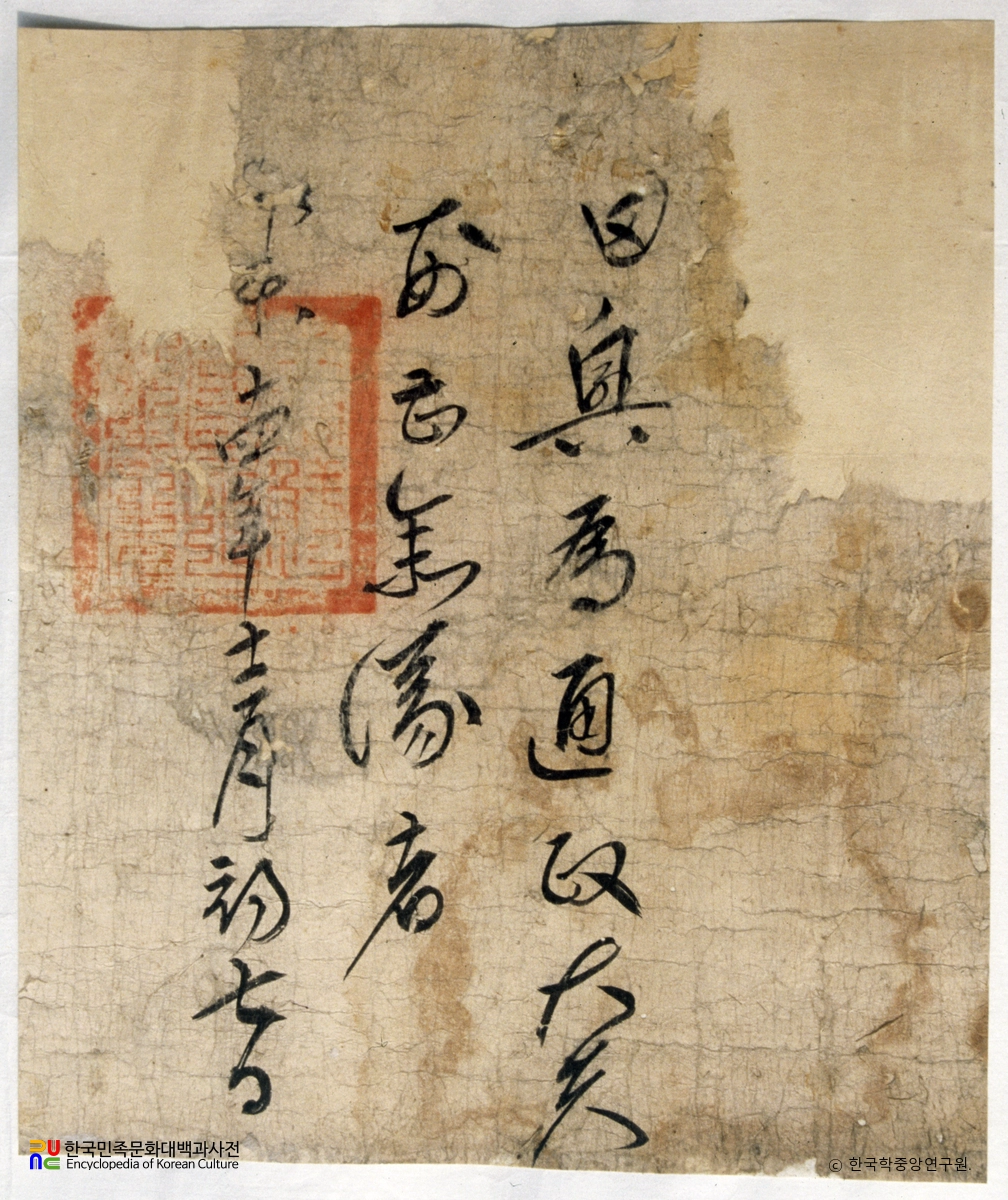 田興爲通政大夫
曹參議者
永樂十四年十二月初七日
한국민족문화대백과사전
Encyclopedia of Korean Culture
© 한국학중앙연구원.